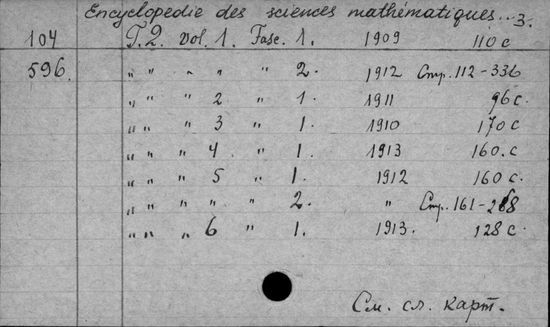 Encyclopédie des sciences mathématiques...3.
104 T.2. Vol. 1. Fasc. 1. 1909 110 с
596. „ „ „ „ „ 2. 1912 Стр. 112-336
„ „ „ 2 „ 1. 1911 96 с.
„ „ „ 3 „ 1. 1910 170 с
„ „ „ 4 „ 1. 1913 160. с
„ „ „ 5 „ 1. 1912 160 с.
„ „ „ „ „ 2. „ Стр. 161-288
„ „ „ 6 „ 1. 1913. 128 с.
См. сл. карт.